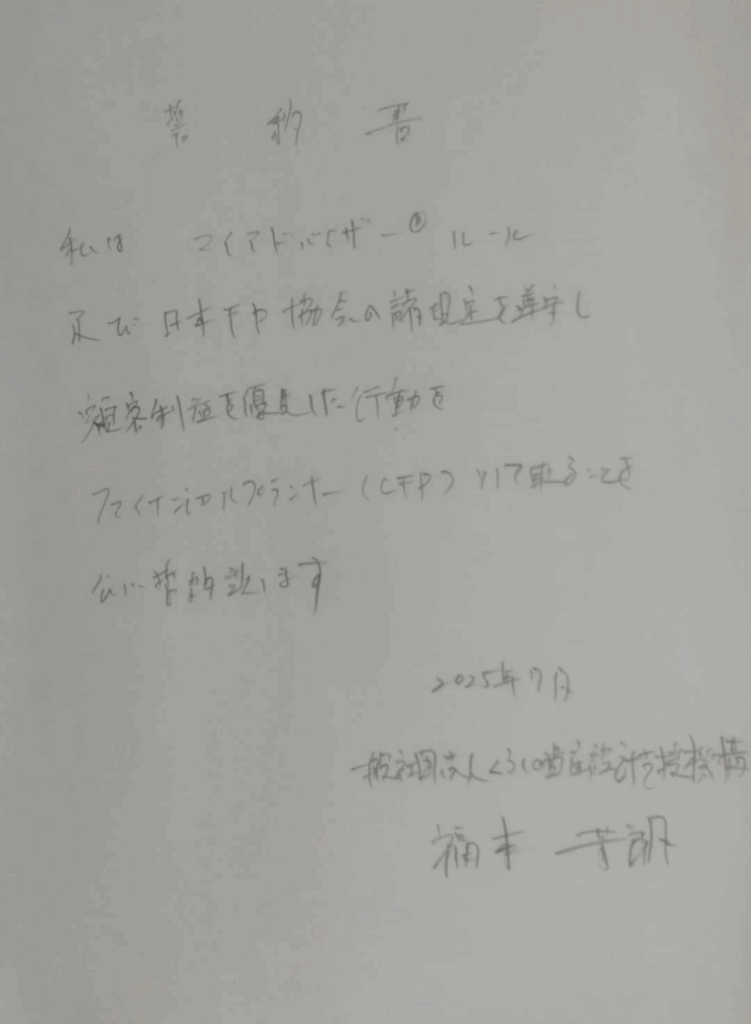 誓約書
私は マイアドバイザー® ルール
及び 日本FP協会の諸規定を遵守し
顧客利益を優先した行動を
ファイナンシャルプランナー(CFP)として取ることを
公に誓約致します
2025年7月
一般社団法人くらしの資産設計支援機構
福本 芳朗